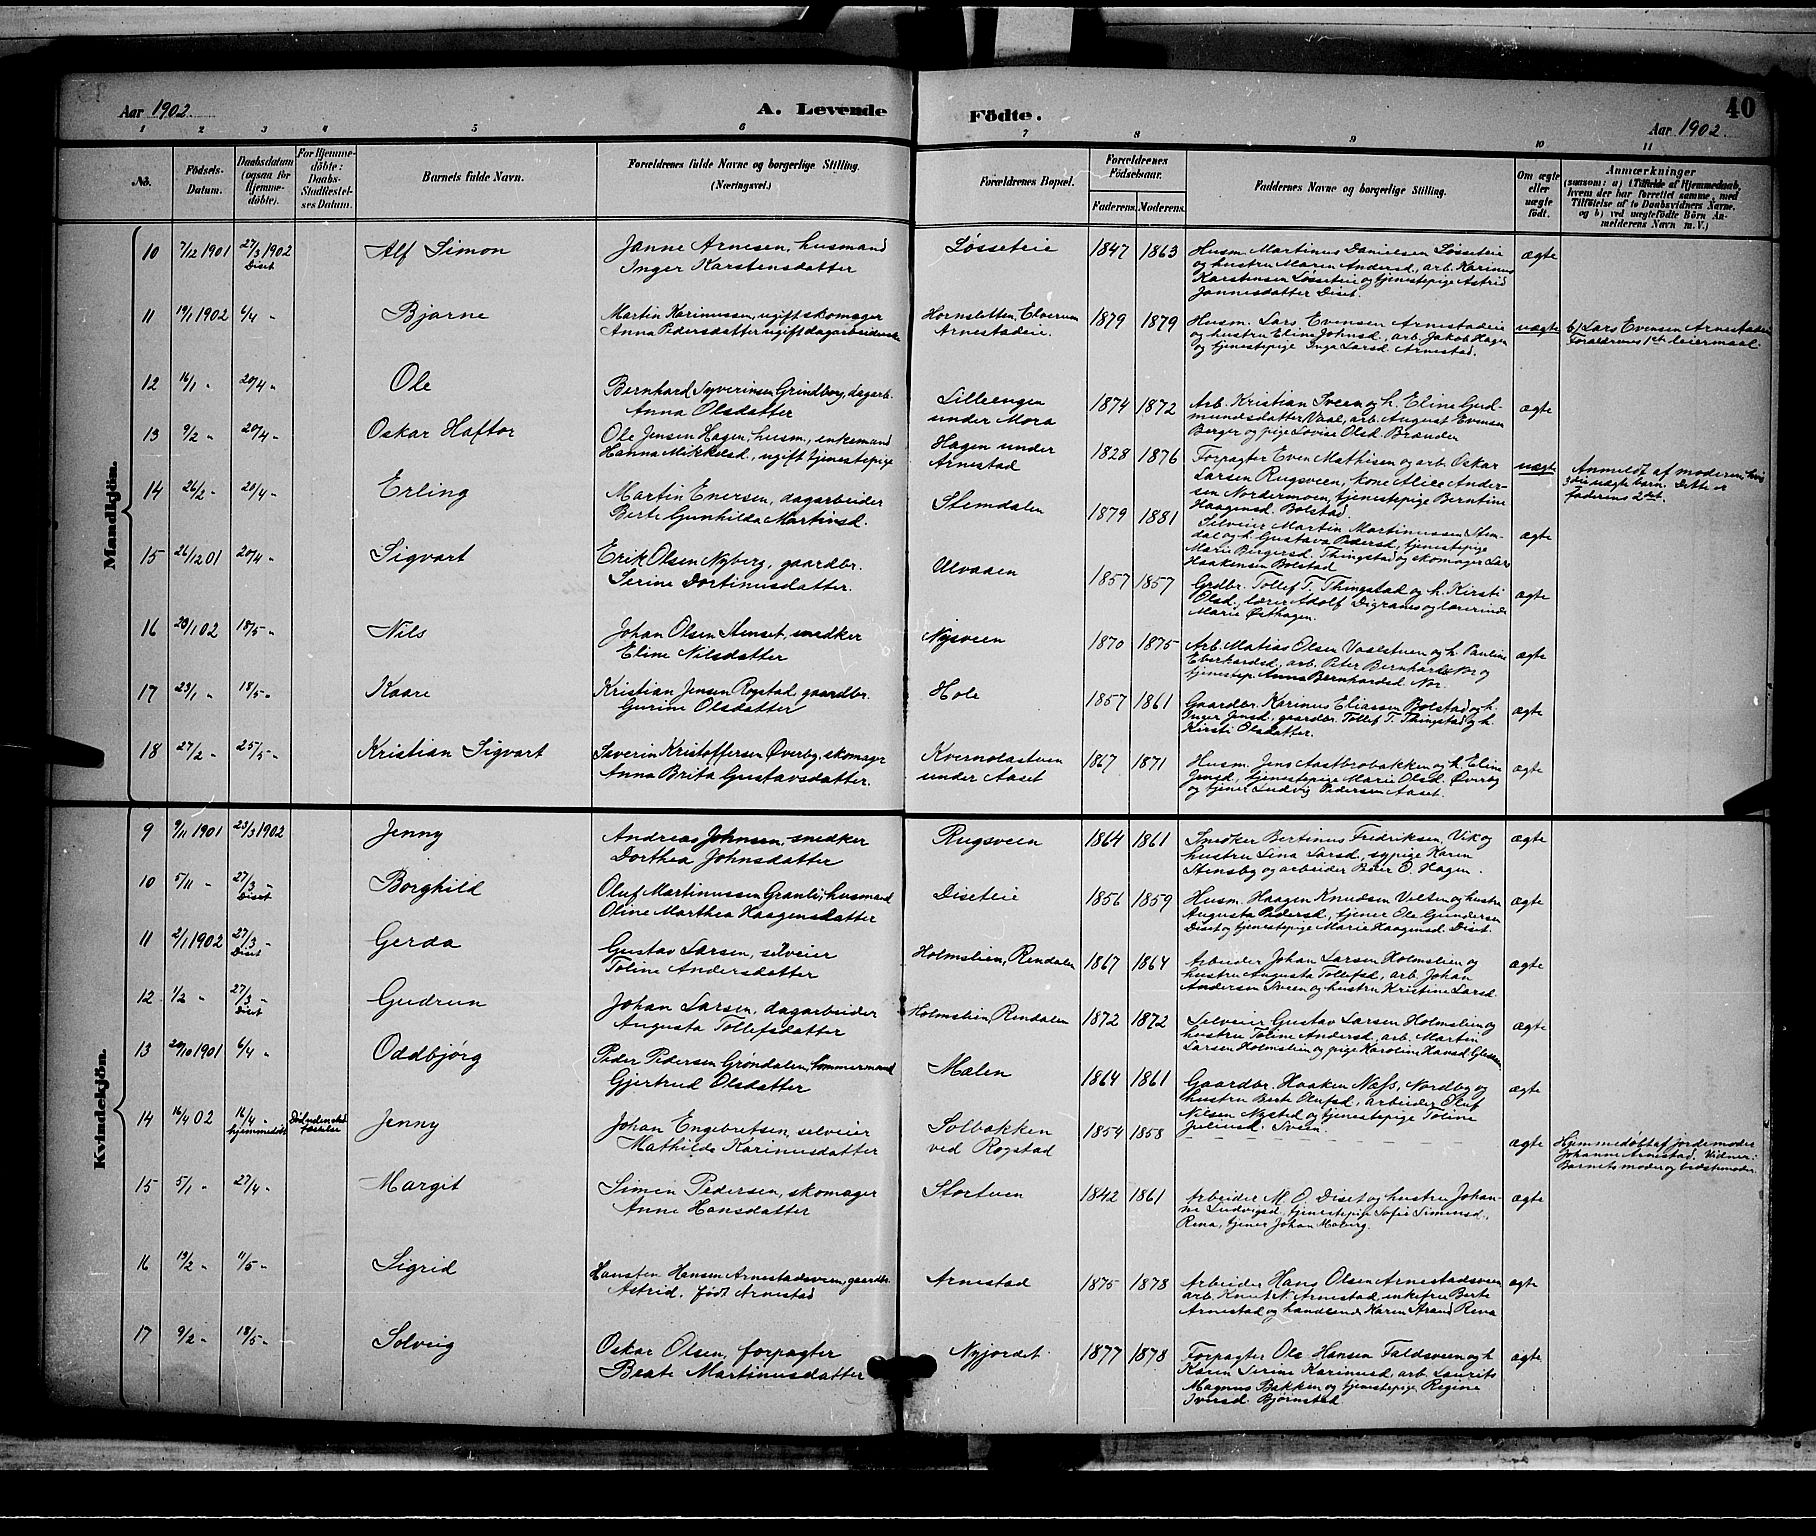 Aar 1902. A. Levende Födte. 40
Aar 1902.
1 2 3 4 5 6 7 8 9 10 11
No. Födsels-Datum. Daabsdatum (ogsaa for Hjemmedöbte). For Hjemmedöbte: Daabs-Stadfæstelses Datum. Barnets fulde Navn. Forældrenes fulde Navne og borgerlige Stilling. (Næringsvei.) Forældrenes Bopæl. Forældrenes Födselsaar. Faderens. Moderens. Faddernes Navne og borgerlige Stilling. Om ægte eller uægte født. Anmærkninger (saasom: a) i Tilfælde af Hjemmedaab, hvem der har forrettet samme, med Tilföielse af to Daabsvidners Navne, og b) ved uægtefödte Börn Anmelderens Navn m.V.)
Mandkjön.
10 7/12 1901 27/3 1902 Diset Alf Simon Janne Arnesen, husmand Løsseteie 1847 1863 Husm. Martinus Danielsen Løsseteie ægte
Inger Karstensdatter og hustru Maren Andersd., arb. Karinus
Karstensen Løsseteie og tjenestepige Astrid
Jannesdatter Diset.
11 19/1 1902 6/4 - Bjarne Martin Karinussen, ugift skomager Hornsletten, Elverum 1879 1879 Husm. Lars Evensen Arnestadeie uægte b) Lars Evensen Arnestadeie
Anna Pedersdatter ugift dagarbeiderske Arnestadeie og hustru Eline Johnsd., arb. Jakob Hagen Forældrenes 1ste leiermaal.
og tjenestepige Inga Larsd. Arnestad.
12 16/1 - 20/4 - Ole Bernhard Syverinsen Grindborg, dagarb. Lilleengen 1874 1872 Arb. Kristian Sveen og h. Eline Gud- ægte
Anna Olsdatter under Mora mundsdatter Vaal, arb. August Evensen
Berger og pige Lovise Olsd. Brænden
13 9/2 - 20/4 - Oskar Haftor Ole Jensen Hagen, husm., enkemand Hagen under 1828 1876 Forpagter Even Mathisen og arb. Oskar uægte Anmeldt af moderen, hvis
Hanna Mikkelsd., ugift tjenestepige Arnestad Larsen Rugsveen, kone Alice Ander- uægte barn. Dette er
sen Nordermoen, tjenestepige Berntine faderens 2det.
Haagensd. Bolstad.
14 26/2 - 20/4 - Erling Martin Enersen, dagarbeider Stemdalen 1879 1881 Selveier Martin Martinussen Stem- ægte
Berte Gunhilda Martinsd. dal og h. Gustava Pedersd., tjenestepige
Marie Bergersd. Thingstad og skomager Lars
Haakensen Bolstad
15 26/12 01 20/4 - Sigvart Erik Olsen Nyberg, gaardbr. Ulvaaen 1857 1857 Grdbr. Tollef T. Thingstad og h. Kirsti ægte
Serine Dortinusdatter. Olsd., lærer Adolf Digranes og lærerinde
Marie Østhagen.
16 23/1 02 18/5 - Nils Johan Olsen Stenset, snedker Nysveen 1870 1875 Arb. Matias Olsen Vaalstuen og h. Pauline ægte
Eline Nilsdatter Eberhardsd., arb. Peter Bernhards. Nor og
tjenestep. Anna Bernhardsd. Nor.
17 23/1 - 18/5 - Kaare Kristian Jensen Rogstad, gaardbr. Hole 1857 1861 Gaardbr. Karinus Eliassen Bolstad og h. ægte
Gurine Olsdatter Inger Jensd., gaardbr. Tollef T. Thingstad og h.
Kirsti Olsdatter.
18 27/2 - 25/5 - Kristian Sigvart Severin Kristoffersen Øverby, skomager Kvernolastuen 1867 1871 Husm. Jens Aastbrobakken og h. Eline ægte
Anna Brita Gustavsdatter. under Aaset Jensd., tjenestepige Marie Olsd. Øverby
og tjener Ludvig Pedersen Aaset.
Kvindekjön.
9 9/11 1901 23/3 1902 Jenny Andreas Johnsen, snedker Rugsveen 1864 1861 Snedker Bertinus Fredriksen Vik og ægte
Dorthea Johnsdatter hustru Lina Larsd., sypige Karen
Stensby og arbeider Peder O. Hagen.
10 5/11 - 27/3 - Diset Borghild Oluf Martinussen Granli, husmand Diseteie 1856 1859 Husm. Haagen Knudsen Velten og hustru ægte
Oline Marthea Haagensdatter Augusta Pedersd., tjener Ole Gundersen
Diset og tjenestepige Marie Haagensd. Diset.
11 2/1 1902 27/3 - Diset Gerda Gustav Larsen, selveier Holmslien, Rendalen 1867 1864 Arbeider Johan Larsen Holmslien og ægte
Toline Andersdatter hustru Augusta Tollefsd., arb. Johan
Andersen Sveen og hustru Kristine Larsd.
12 1/2 - 27/3 - Diset Gudrun Johan Larsen, dagarbeider Holmslien, Rendalen 1872 1872 Selveier Gustav Larsen Holmslien og ægte
Augusta Tollefsdatter hustru Toline Andersd., arb. Martin
Larsen Holmslien og pige Karoline Hansd.
13 20/10 1901 6/4 - Oddbjørg Peder Pedersen Grøndalen, tømmermand Mælen 1864 1861 Gaardbr. Haaken Næss, Nordby og ægte
Gjertrud Olsdatter hustru Berte Olufsd., arbeider Oluf
Nilsen Nysted og tjenestepige Toline
Juliusd. Sveen.
14 16/4 02 16/4 - hjemmedøbt Død uden stadfæstelse Jenny Johan Engebretsen, selveier Solbakken 1854 1858 - - - - ægte Hjemmedøbt af jordemoder
Mathilde Karinusdatter ved Rogstad Johanne Arnestad. Vidner:
Barnets moder og bedstemoder.
15 5/1 - 27/4 - Margit Simen Pedersen, skomager Stortuen 1842 1861 Arbeider M. O. Diset og hustru Johan- ægte
Anne Hansdatter ne Ludvigsd., tjenestepige Sofie Simensd.,
Rena, tjener Johan Moberg.
16 13/2 - 11/5 - Sigrid Hansten Hansen Arnestadsveen, gaardbr. Arnestad 1875 1878 Arbeider Hans Olsen Arnestadsveen ægte
Astrid, født Arnestad arb. Knut N. Arnestad, enkefru Berte
Arnestad og handlende Karen Strand Rena
17 9/2 - 18/5 - Solveig Oskar Olsen, forpagter Nyjordet 1877 1878 Forpagter Ole Hansen Faldsveen og h. ægte
Beate Martinusdatter Karen Serine Karinusd., arb. Laurits
Magnus Bakken og tjenestepige Regine
Iversd. Bjørnstad.